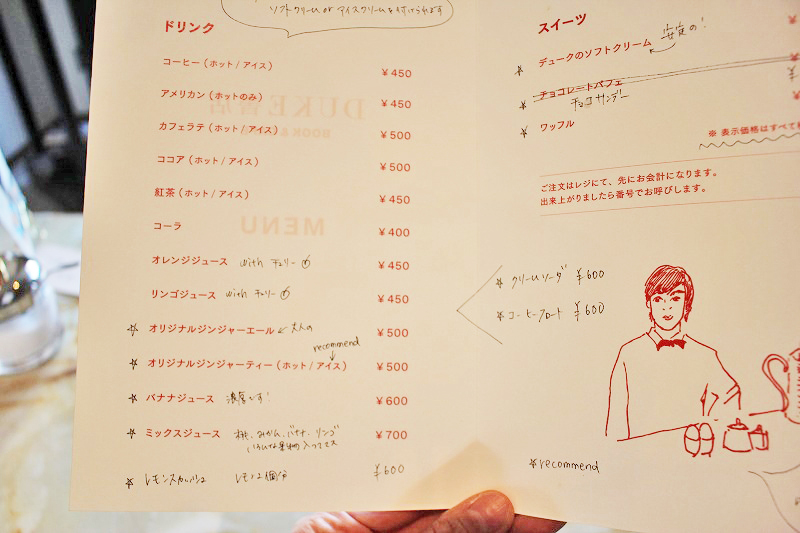 ソフトクリーム or アイスクリームを付けられます
ドリンク
コーヒー（ホット / アイス） ￥450
アメリカン（ホットのみ） ￥450
カフェラテ（ホット / アイス） ￥500
ココア（ホット / アイス） ￥500
紅茶（ホット / アイス） ￥450
コーラ ￥400
オレンジジュース with チェリー ￥450
リンゴジュース with チェリー ￥450
☆ オリジナルジンジャーエール ← 大人の ￥500
recommend
☆ オリジナルジンジャーティー（ホット / アイス） ￥500
☆ バナナジュース 濃厚です! ￥600
☆ ミックスジュース 桃、みかん、バナナ、リンゴ ￥700
いろいろな果物入ってマス
☆ レモンスカッシュ レモン2個分 ￥600
スイーツ
☆ デュークのソフトクリーム 安定の!
☆ チョコレートパフェ
チョコサンデー
☆ ワッフル
※ 表示価格はすべて
ご注文はレジにて、先にお会計になります。
出来上がりましたら番号でお呼びします。
☆ クリームソーダ ￥600
☆ コーヒーフロート ￥600
☆recommend
DUKE書店
MENU